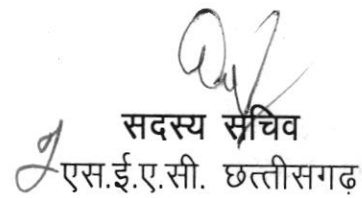 सदस्य सचिव
एस.ई.ए.सी. छत्तीसगढ़